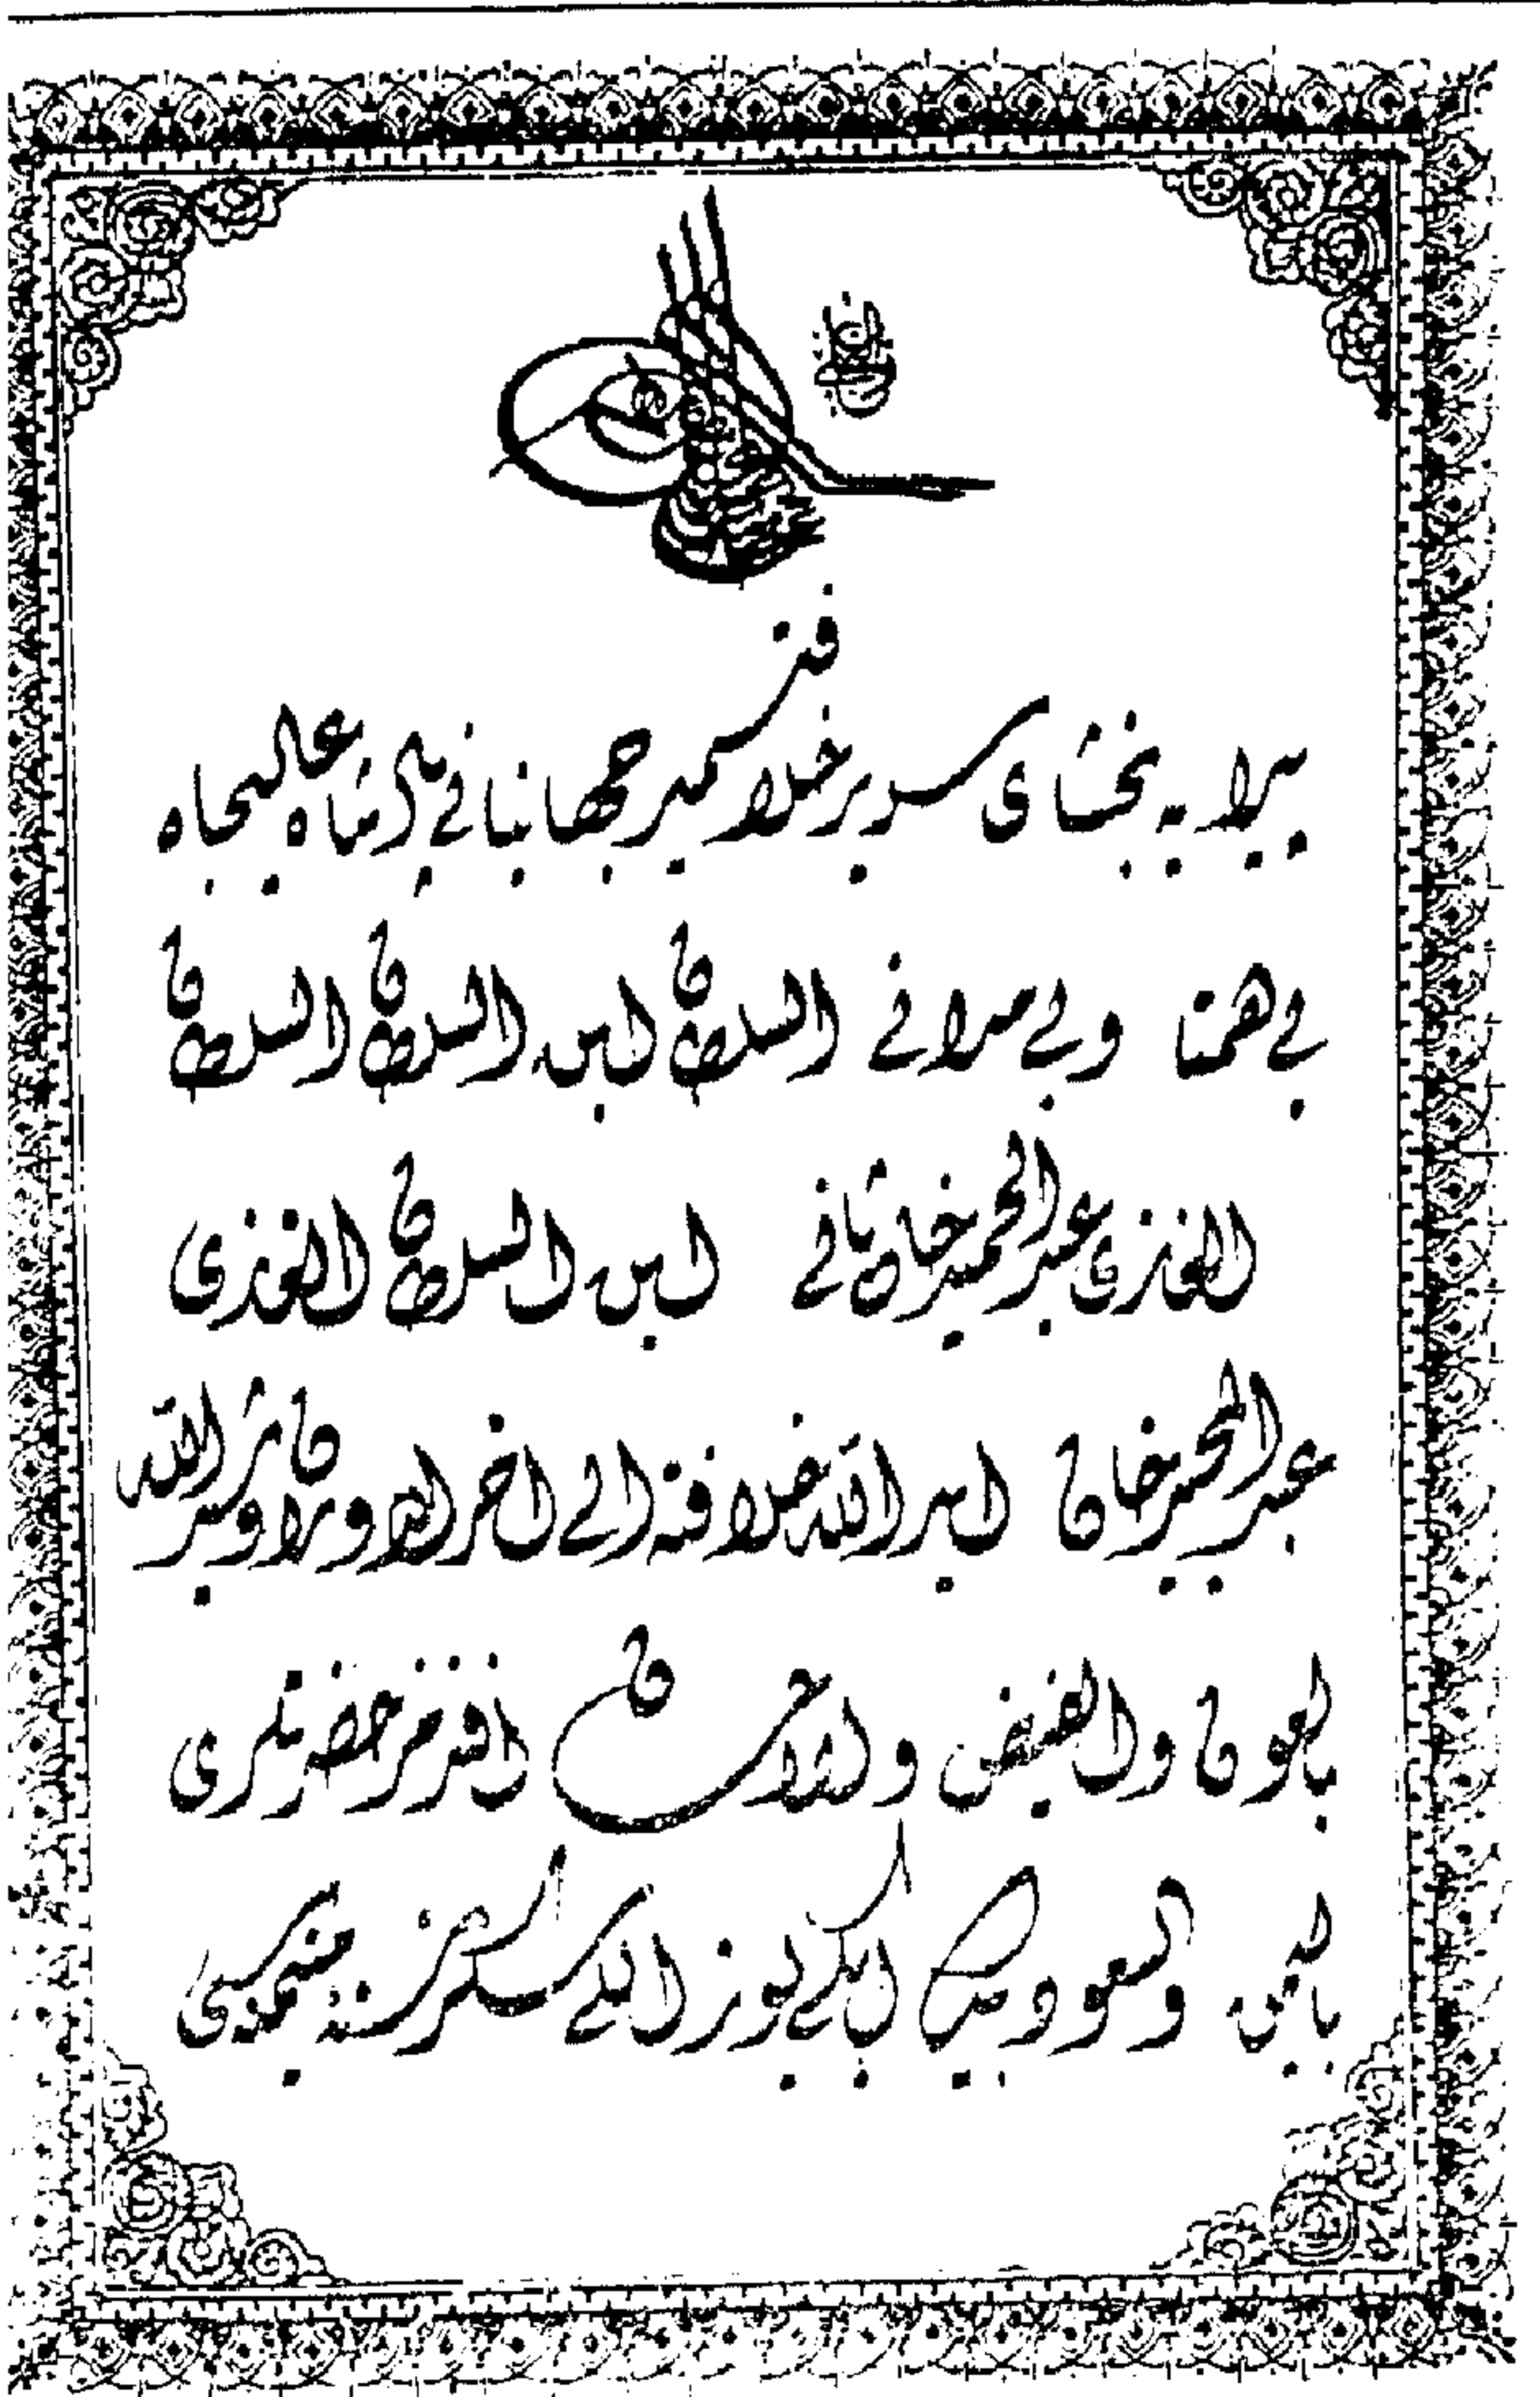 پیرایه بخشای سریر خلافتسمیر جهانبانی پادشاه عالیجاه
بی همتا وبی مدانی السلطان ابن السلطان السلطان
الغازی عبدالحمید خان ثانی ابن السلطان الغازی
عبدالمجید خان اید الله خلافته الی اخر الدوران وسر الله
بالعون والفیض والاحسان افندمز حضرتلری
بالیمن والسعود بیك ایکی یوز ایلی سکز سنه